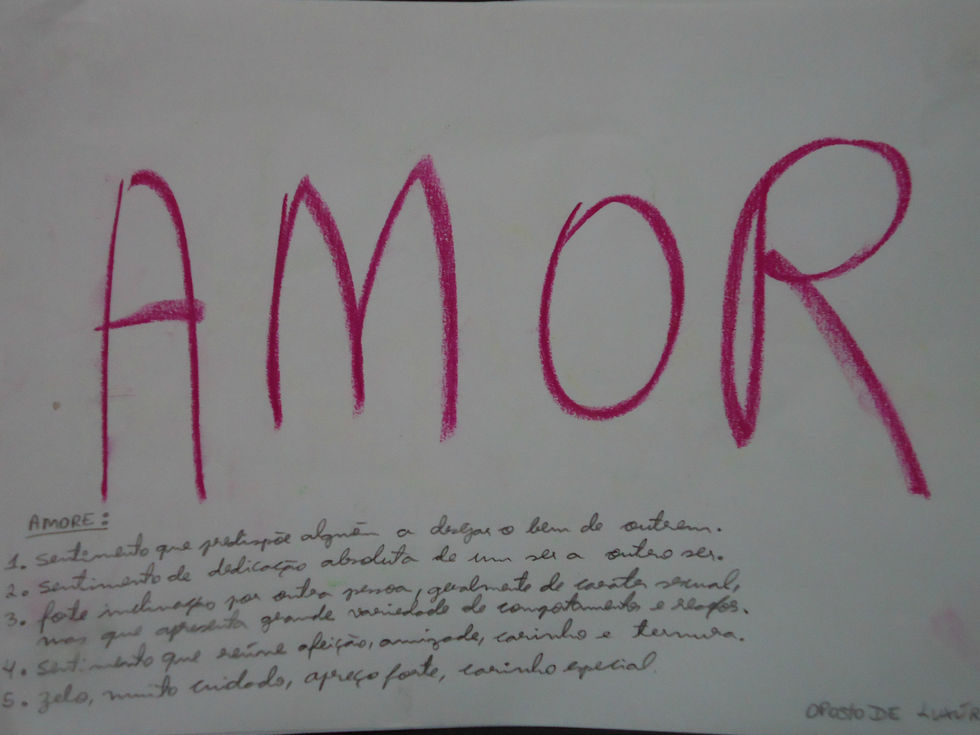 AMOR
AMORE:
1. Sentimento que predispõe alguém a desejar o bem de outrem.
2. Sentimento de dedicação absoluta de um ser a outro ser.
3. forte inclinação por outra pessoa, geralmente de caráter sexual,
mas que apresenta grande variedade de comportamentos e reações.
4. Sentimento que reúne afeição, amizade, carinho e ternura.
5. Zelo, muito cuidado, apreço forte, carinho especial.
OPOSTO DE